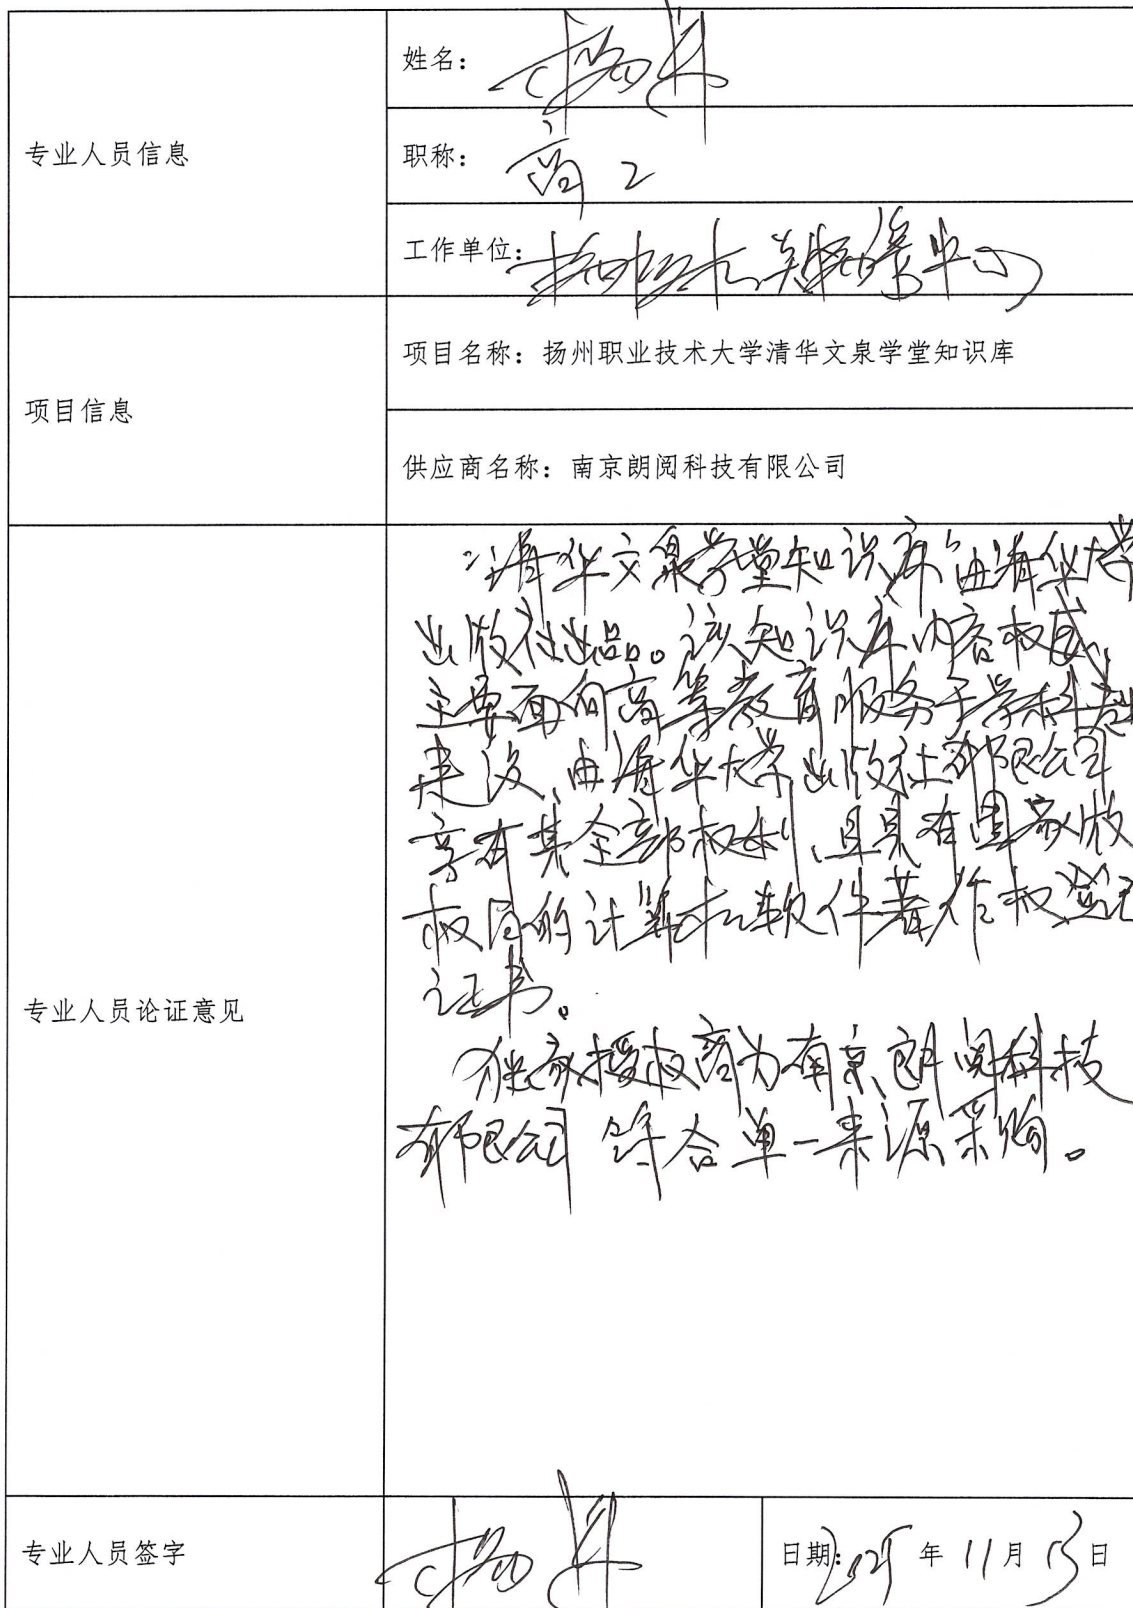 专业人员信息
姓名：杨
职称：高工
工作单位：扬州 中心
项目信息
项目名称：扬州职业技术大学清华文泉学堂知识库
供应商名称：南京朗阅科技有限公司
专业人员论证意见
"清华文泉学堂知识库"由清华大学
出版社出品。该知识库内容权威，
主要面向高等教育服务于学科专业
建设，由清华大学出版社有限公司
享有其全部权利，且具有国家版
权局的计算机软件著作权登记
证书。
独家授权商为南京朗阅科技
有限公司 符合单一来源采购。
专业人员签字
杨
日期： 年 11月 13日